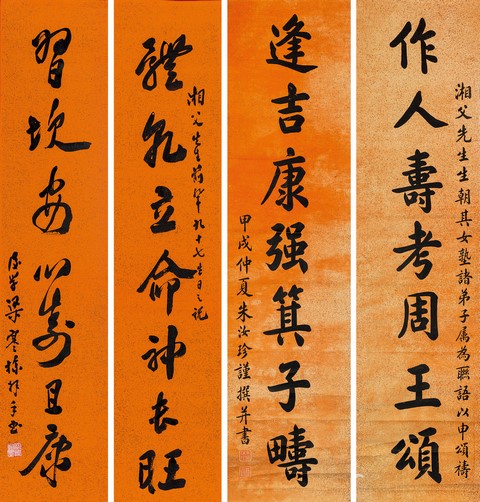 湘父先生生朝其女塾諸弟子属為聯語以申頌禱
作人壽考周王頌
逢吉康强箕子疇
甲戌仲夏朱汝珍謹撰并書
湘父先生前輩九十七生日之祝
體乾立命神長旺
習坎安心壽且康
後学梁寒操拜手書